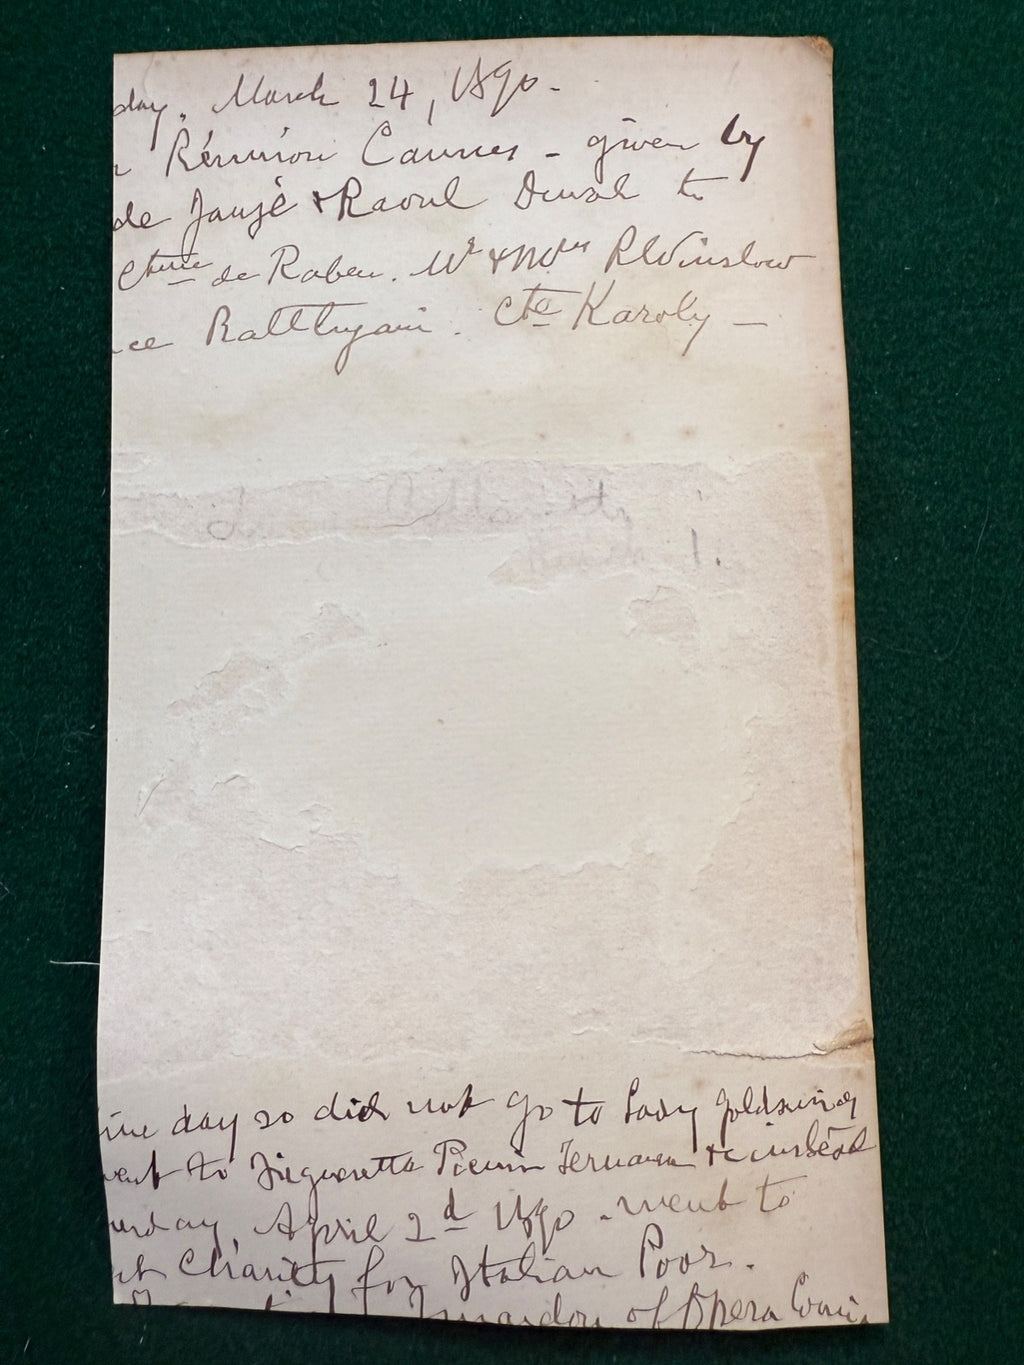 day, March 24, 1890.
Réunion Cannes - given by
de Janzé & Raoul Duval to
Ctesse de Raben. Mr & Mrs R Winslow
ce Batthyani. Cte Karoly -
Charity
1.
ine day so did not go to Lady Goldsmid
went to Pic-nic instead
day, April 2d 1890 - went to
Charity for Italian Poor.
of Opera Comi